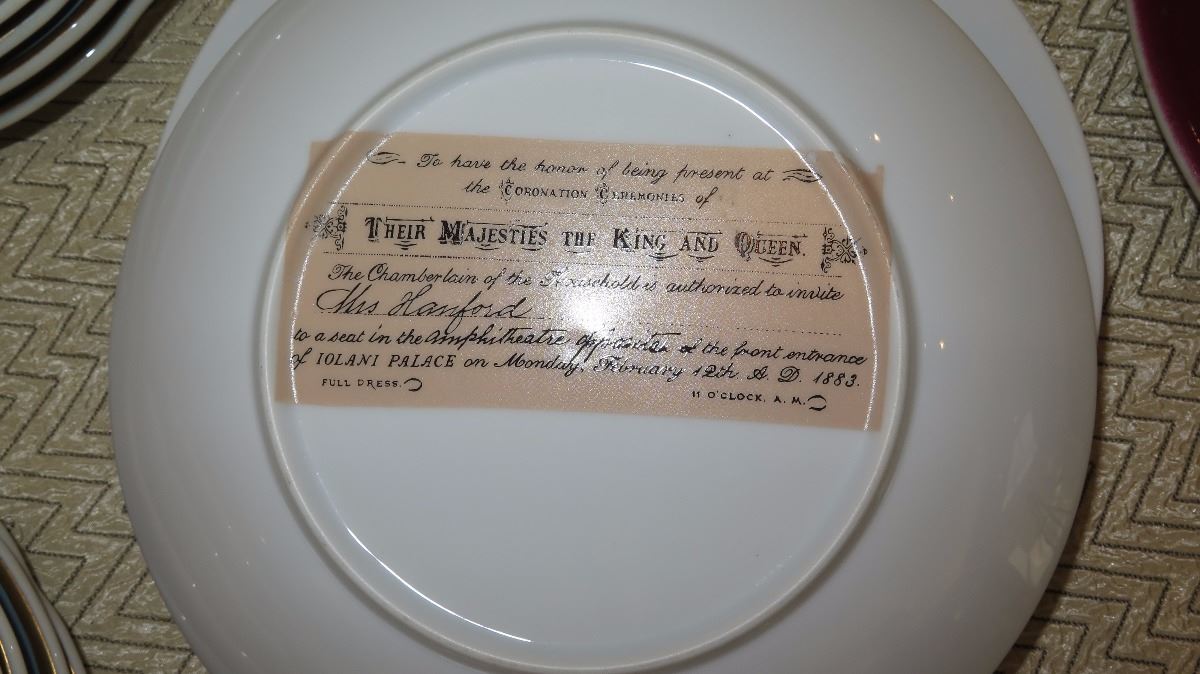 To have the honor of being present at
the CORONATION CEREMONIES of
THEIR MAJESTIES THE KING AND QUEEN.
The Chamberlain of the Household is authorized to invite
Mrs Hanford
to a seat in the Amphitheatre opposite of the front entrance
of IOLANI PALACE on Monday, February 12th A. D. 1883.
FULL DRESS.
11 O'CLOCK, A. M.